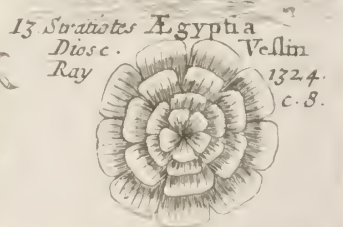 13 Stratiotes Ægyptia
Diosc. Veslin
Ray 1324.
c. 8.